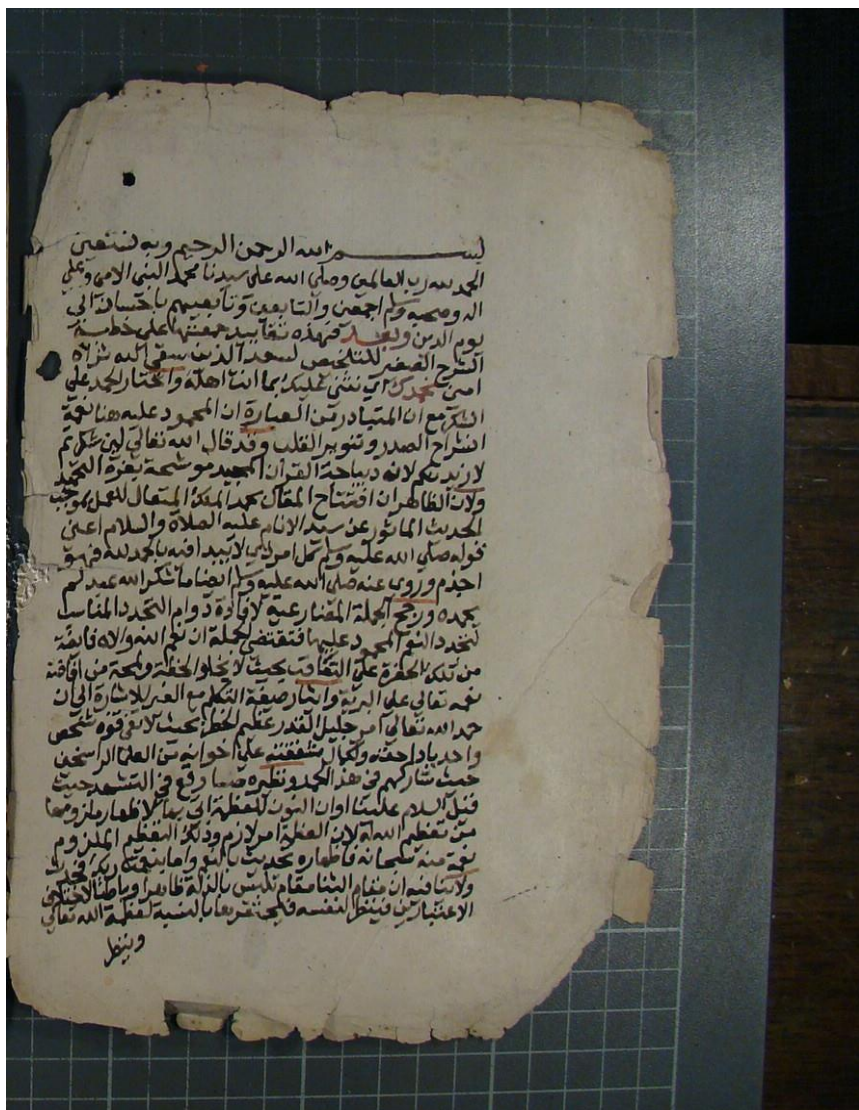 بسم الله الرحمن الرحيم وبه نستعين
الحمد لله رب العالمين وصلى الله على سيدنا محمد النبي الامي وعلى
اله وصحبه وسلم اجمعين والتابعين وتابعيهم باحسان الى
يوم الدين وبعد فهذه تقاييد جمعتها على خطبة
الشرح الصغير للتلخيص لسعد الدين سقى الله ثراه
امين نحمدك اي نثني عليك بما انت اهله واختار الحمد على
الشكر مع ان المتبادر من العبارة ان المحمود عليه هنا نعمة
انشراح الصدر وتنوير القلب وقد قال الله تعالى لين شكرتم
لازيدنكم لانه ديباجة القرآن المجيد موشحة بغرة التحميد
ولان الظاهر ان افتتاح المقال بحمد الملك المتعال للعمل بموجب
الحديث الماثور عن سيد الانام عليه الصلاة والسلام اعني
قوله صلى الله عليه وسلم كل امر ذي لا يبدا فيه بالحمد لله فهو
اجذم وروى عنه صلى الله عليه وسلم ايضا ما شكر الله عبد لم
يحمده ورجح الجملة المضارعية لافادة دوام التجدد المناسب
لتجدد النعم المحمود عليها فتقتضي الجملة ان نعم الله والاه فايضة
من تلك الحضرة على التعاقب بحيث لا تخلو لحظة ولمحة من افاضة
نعمه تعالى على البرية وايثار صيغة التكلم مع الغير للاشارة الى ان
حمد الله تعالى امر جليل القدر عظيم الخطر بحيث لا تفي قوة شخص
واحد باداء حقه ولكمال شفقته على اخوانه من العلما الراسخين
حيث شاركهم في هذا الحمد ونظيره ما وقع في التشهد حيث
قيل السلام علينا او ان النون للعظمة اتى بها لاظهار ملزومها
من تعظيم الله له لان العظمة امر لازم وذلك التعظيم الملزوم
نعمة منه سبحانه فاظهاره تحديث بالنعم واما بنعمة ربك فحدث
ولا ينافيه ان مقام الثنا مقام تلبس بالذلة ظاهرا وباطنا لاختلاف
الاعتبارين فينظر لنفسه بالنسبة لعظمة الله تعالى
وينظر